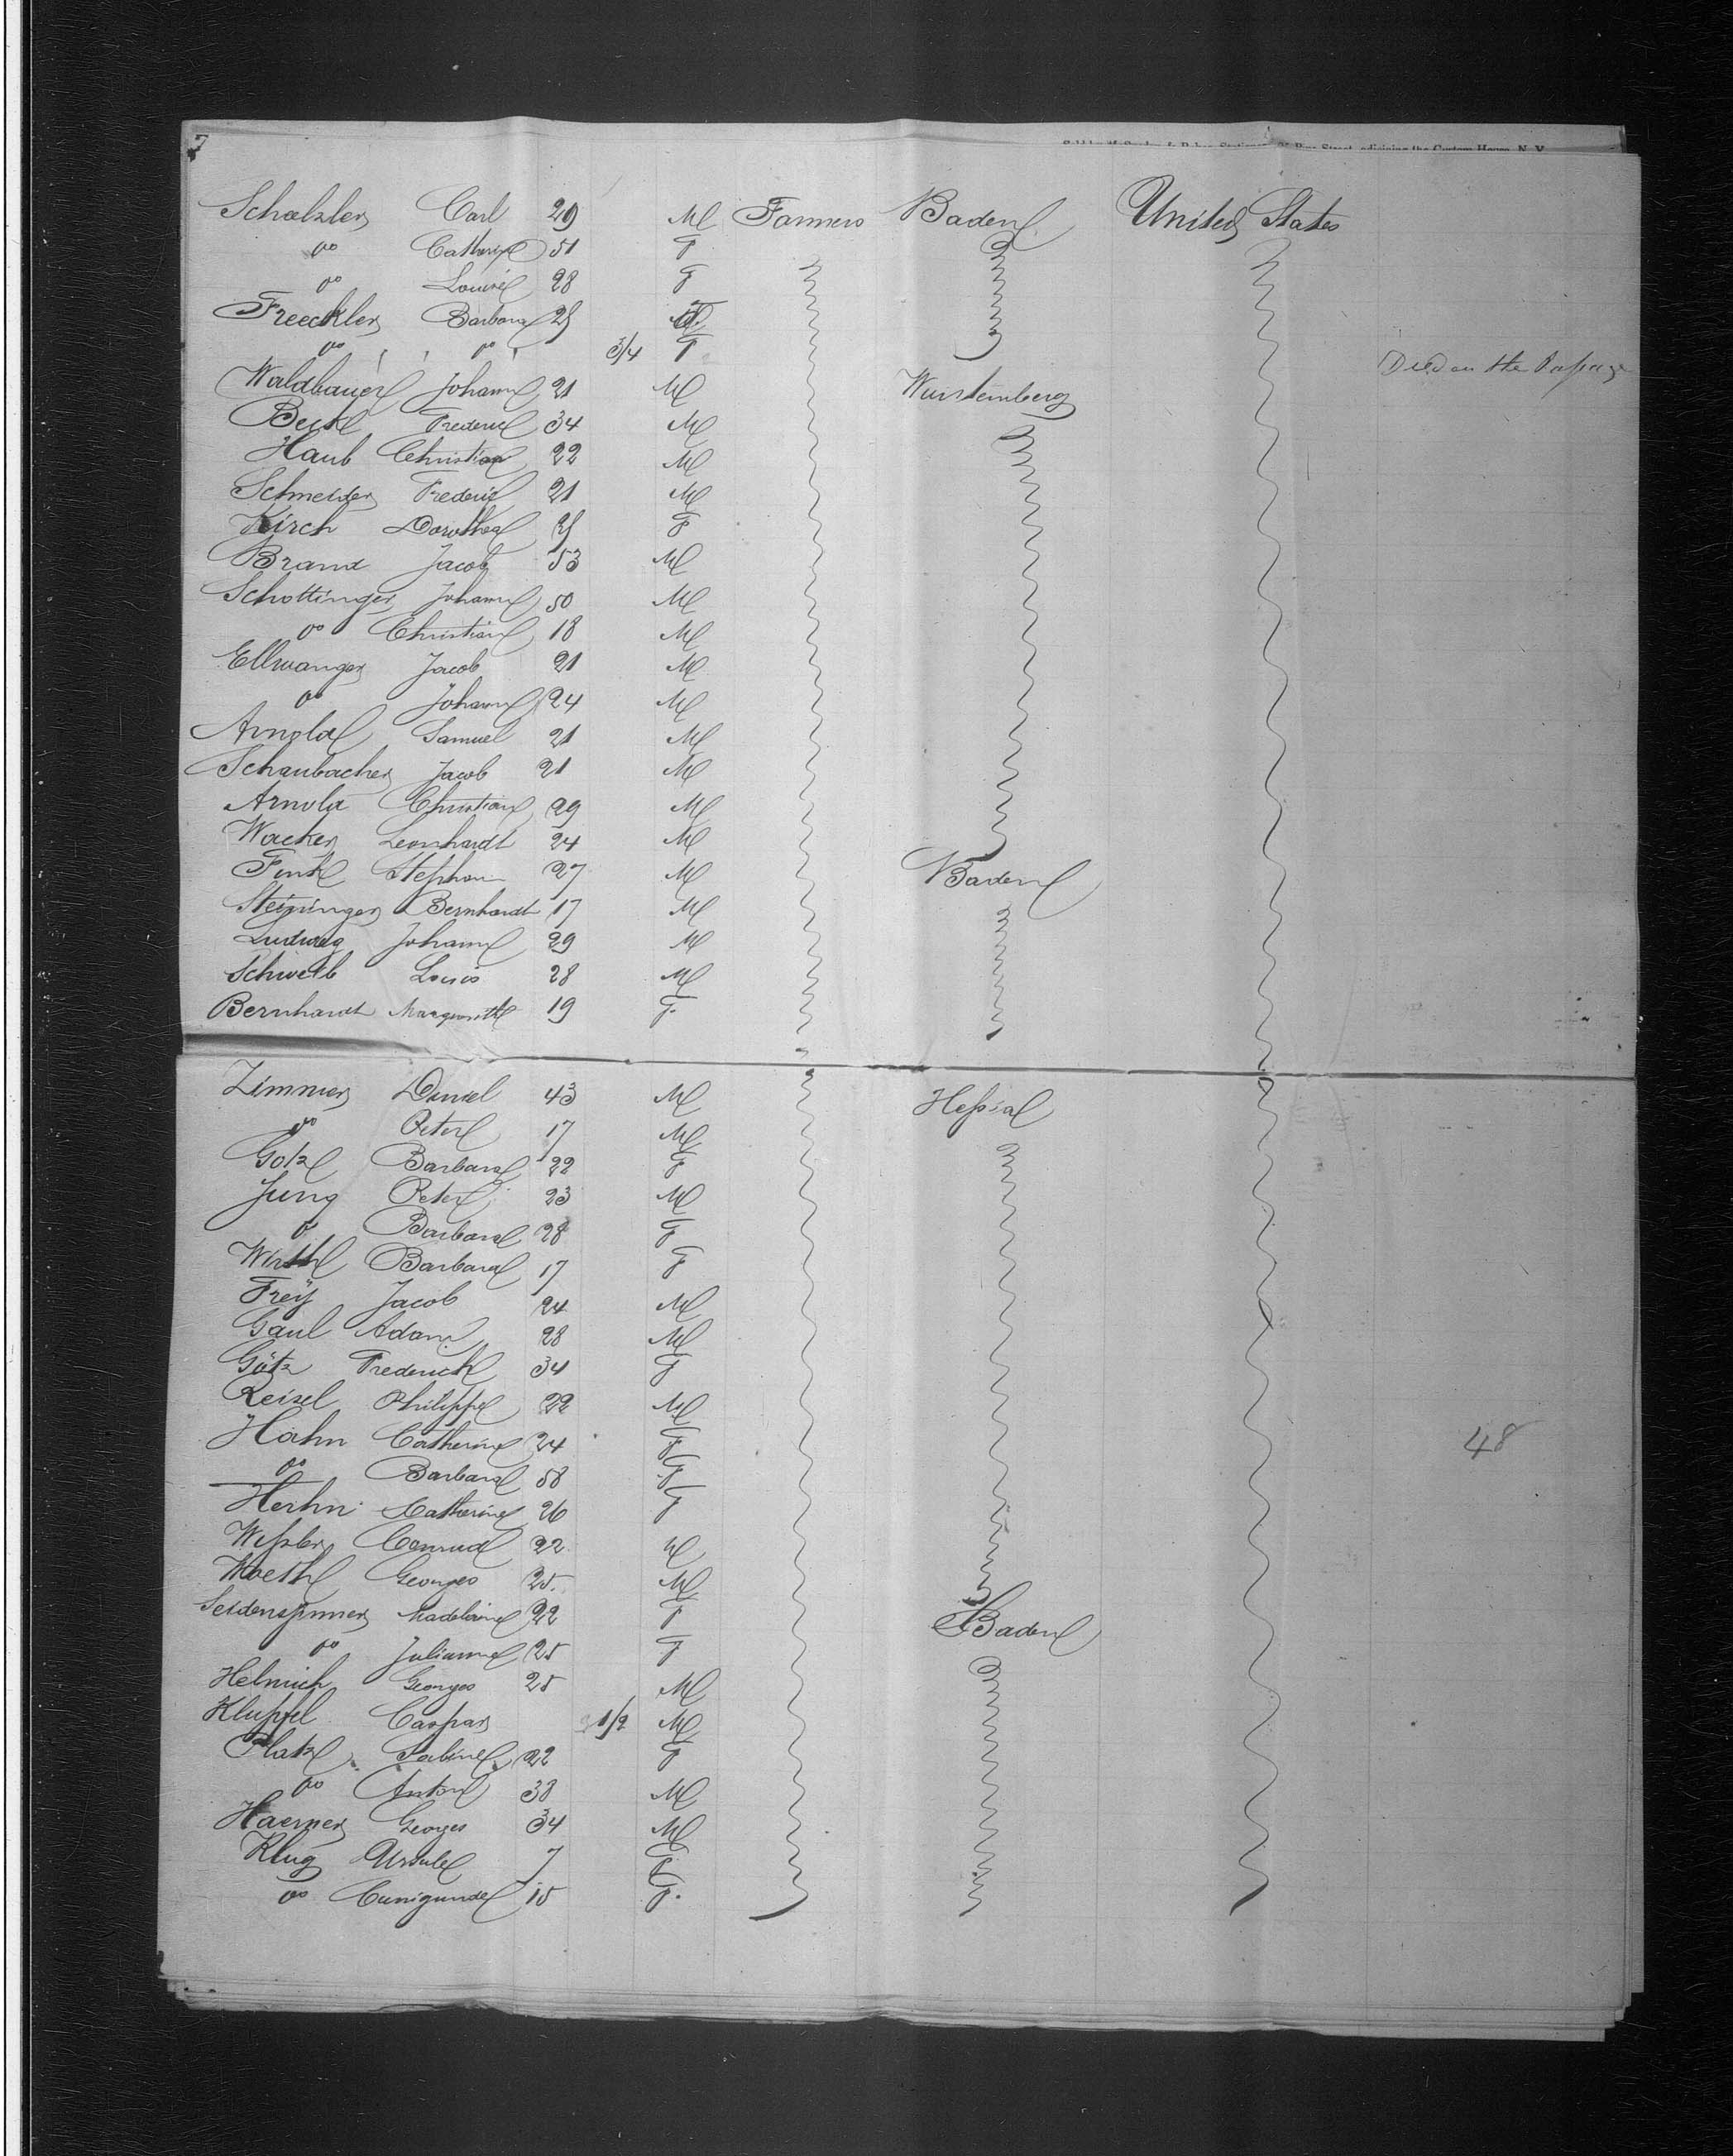 7
Schælzler Carl 29 M Farmers Baden United States
do Catherine 51 F
do Louise 28 F
Freeckler Barbara 25 F
do do 3/4 F Died on the Passage
Waldbauer Johann 21 M Wurtemberg
Beck Frederic 34 M
Haub Christian 22 M
Schneider Frederic 21 M
Kirch Dorothea F
Brand Jacob 53 M
Schottinger Johann 50 M
do Christian 18 M
Ellwanger Jacob 21 M
do Johann 24 M
Arnold Samuel 21 M
Schaubacher Jacob 21 M
Arnold Christian 29 M
Wacker Leonhardt 24 M
Fink Stephan 27 M Baden
Steininger Bernhardt 17 M
Ludwig Johann 29 M
Schweib Louis 28 M
Bernhardt Margareth 19 F.
Zimmer Daniel 43 M Hessia
do Peter 17 M
Gotz Barbara 22 F
Jung Peter 23 M
do Barbara 28 F
Wirth Barbara 17 F
Frey Jacob 24 M
Gaul Adam 28 M
Götz Frederick 34 F
Reisel Philippe 22 M
Hahn Catherine 24 F 48
do Barbara 58 F
Herhn Catherine 26 F
Weszler Conrad 22 M
Woeth Georges 25. M
Seidenspinner Madelaine 22 F Baden
do Julianne 25 F
Helmich Georges 25 M
Klupfel Caspar 1/2 M
Platz Sabine 22 F
do Anton 38 M
Haerner Georges 34 M
Klug Ursule 7 F
do Cunigunde 15 F.